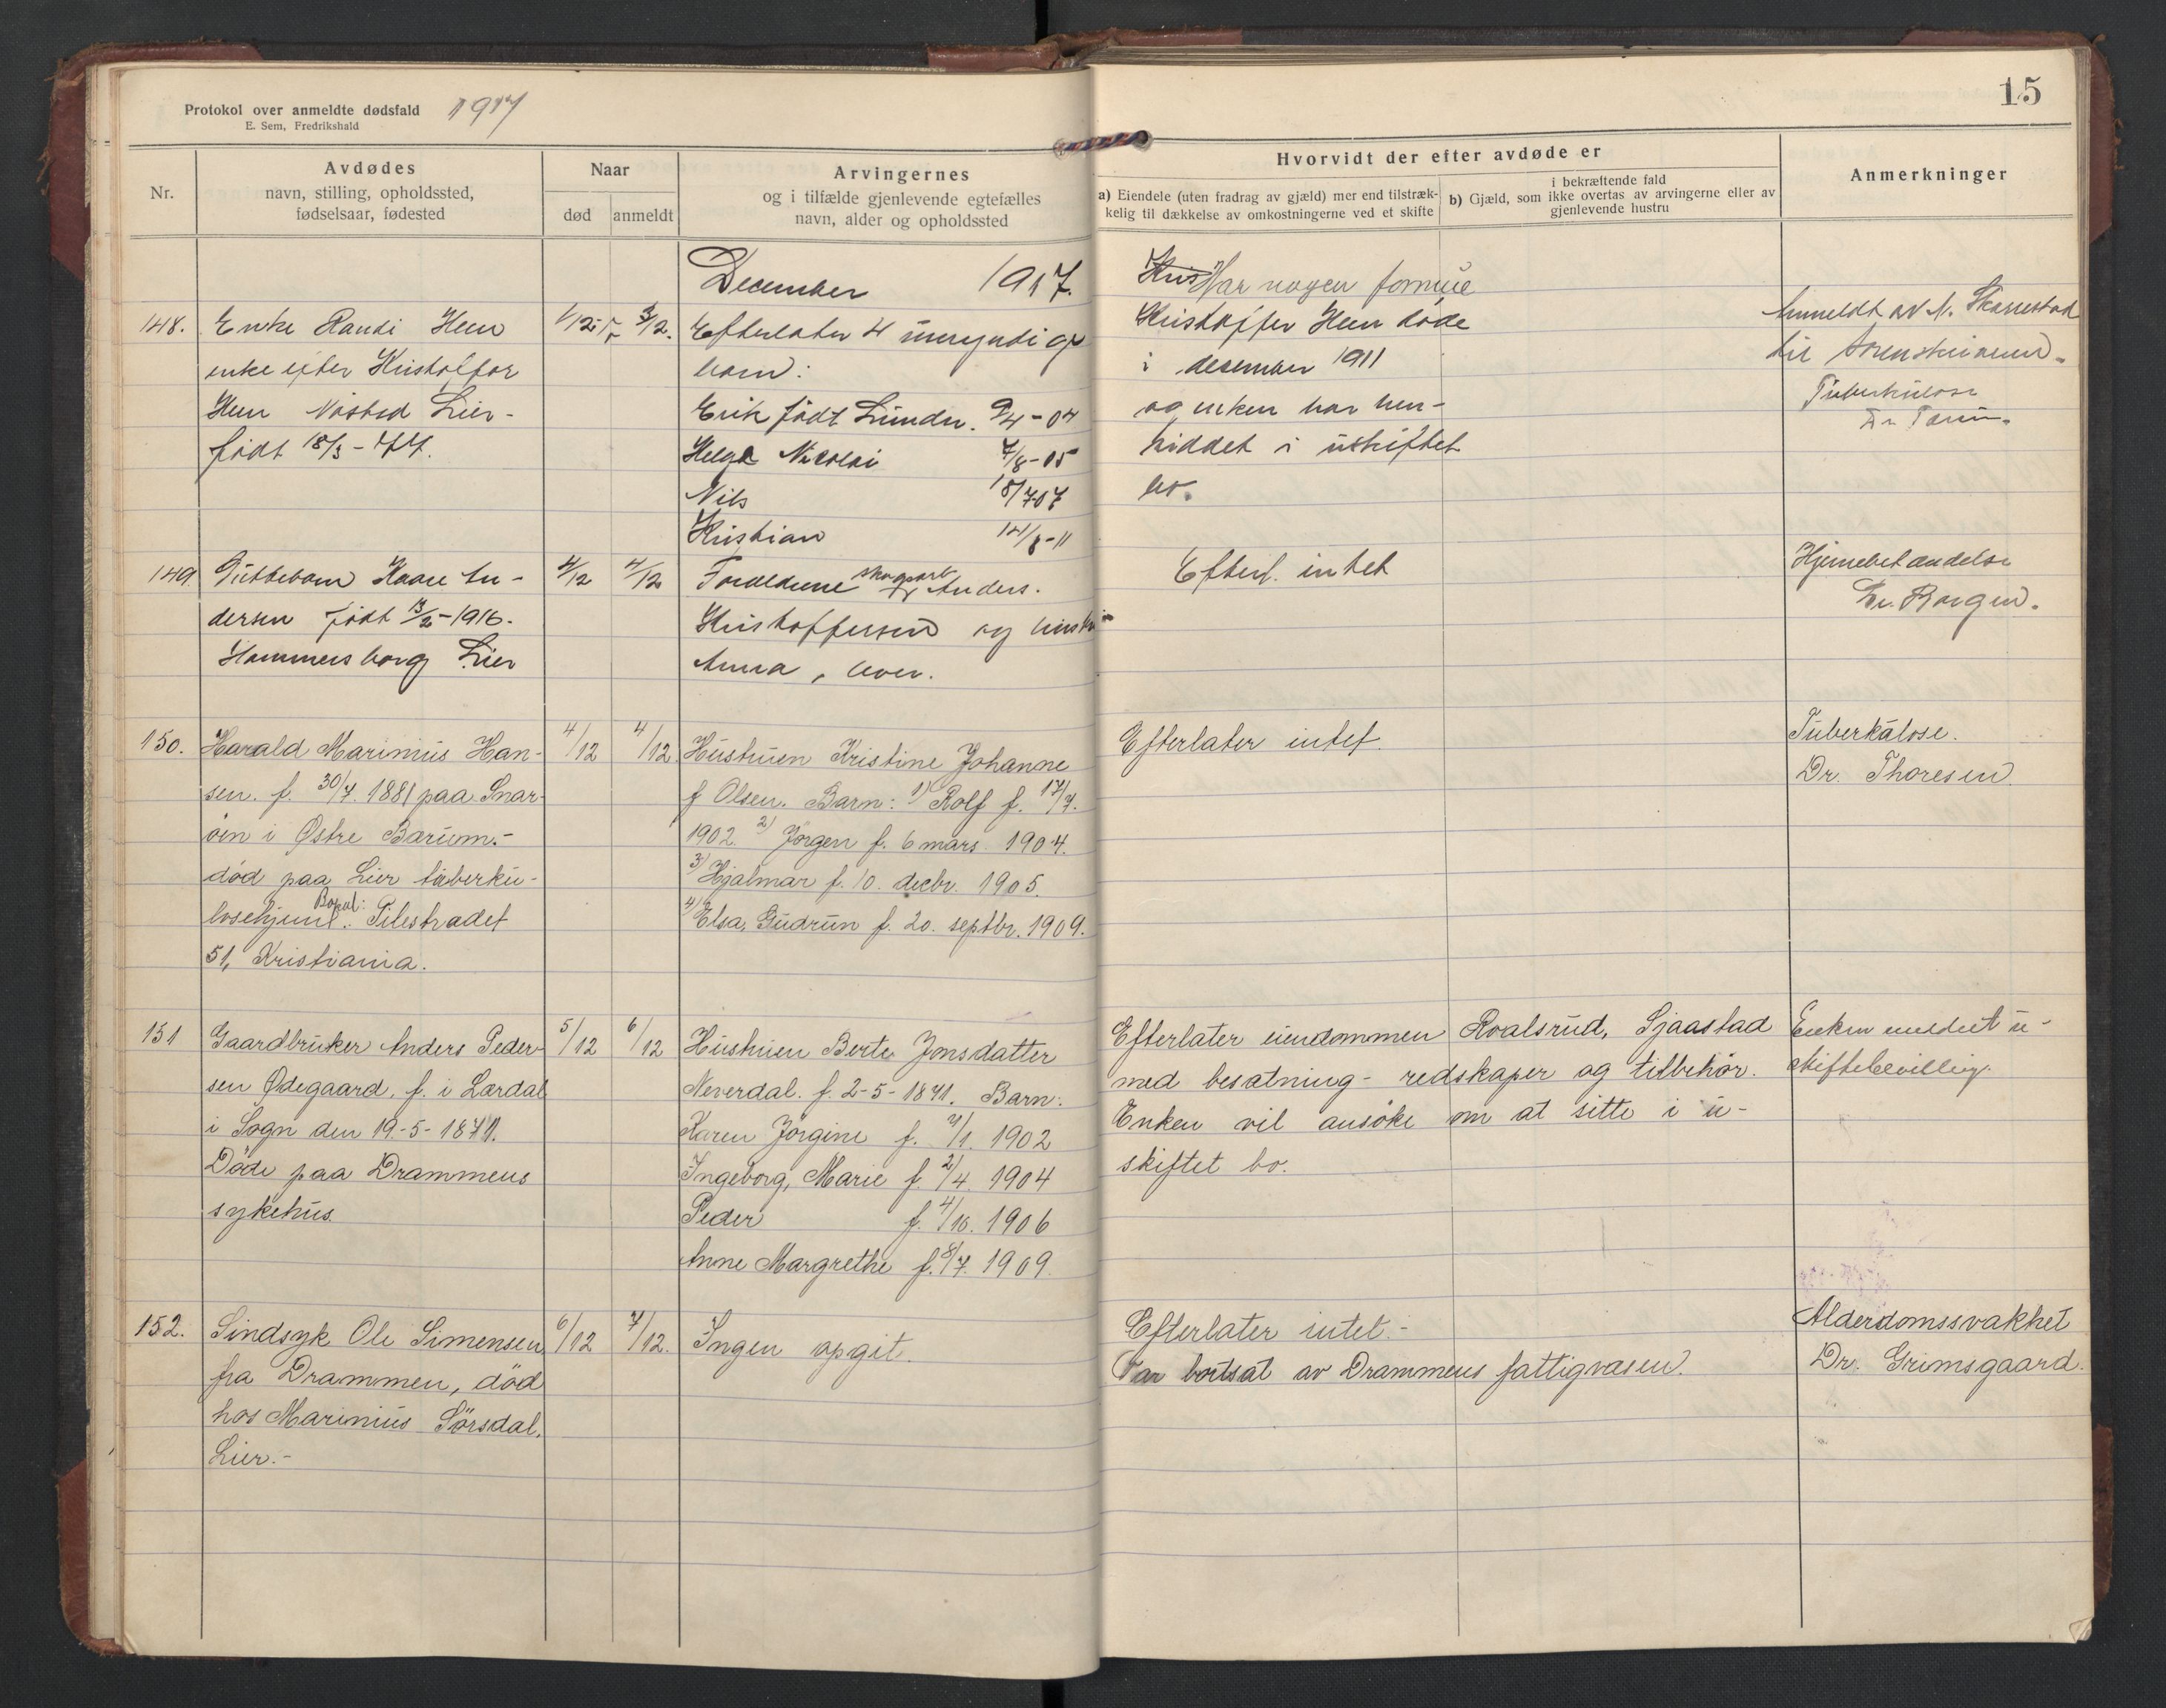 Protokol over anmeldte dødsfald 1917
E. Sem, Fredrikshald
15
Nr.
Avdødes
navn, stilling, opholdssted,
fødselsaar, fødested
Naar
død
anmeldt
Arvingernes
og i tilfælde gjenlevende egtefælles
navn, alder og opholdssted
Hvorvidt der efter avdøde er
a) Eiendele (uten fradrag av gjæld) mer end tilstræk-
kelig til dækkelse av omkostningerne ved et skifte
i bekræftende fald
b) Gjæld, som ikke overtas av arvingerne eller av
gjenlevende hustru
Anmerkninger
December 1917.
148.
Enke Randi Heen
enke efter Kristoffer
Heen Nøsted Lier-
født 18/3-74.
1/12-17
3/12.
Efterlater 4 umyndige
barn:
Erik født Lunder. 9/4-04
Helge Nicolai 7/8-05
Nils 18/7-07
Kristian 14/8-11
Har nogen formue
Kristoffer Heen døde
i desember 1911
og enken har hen-
siddet i uskiftet
bo.
Anmeldt av N. Skarrestad
til Sorenskriveren-
Tuberkulose
149.
Guttebarn Kaare An-
dersen født 13/2-1916.
Hammersborg Lier
4/12
4/12
Forældrene skogsarb. Anders.
Kristoffersen og hustru
Anna, lever.
Efterl. intet
Hjernebetændelse
Dr. Borgen.
150.
Harald Marinius Han-
sen. f. 30/7. 1881 paa Snar-
øen i Østre Bærum.-
død paa Lier tuberku-
losehjem. Bopæl: Pilestrædet
51, Kristiania.
4/12
4/12
Hustruen Kristine Johanne
f Olsen. Barn: 1) Rolf f. 17/7.
1902. 2) Jørgen f. 6 mars. 1904.
3) Hjalmar f. 10. decbr. 1905.
4) Elsa, Gudrun f. 20. septbr. 1909.
Efterlater intet.
Tuberkulose.
Dr. Thoresen
151
Gaardbruker Anders Peder-
sen Ødegaard, f. i Lærdal
i Sogn den 19-5-1871.
Døde paa Drammens
sykehus.
5/12
6/12
Hustruen Berte Jonsdatter
Neverdal. f. 2-5-1871. Barn:
Karen Jørgine f. /1. 1902
Ingeborg, Marie f. 2/4. 1904
Peder f. 4/10. 1906
Anne Margrethe f. 8/7. 1909.
Efterlater eiendommen Roalsrud, Sjaastad
med besætning- redskaper og tilbehør.
Enken vil ansøke om at sitte i u-
skiftet bo.
Enken meddelt u-
skiftebevilling.
152.
Sindsyk Ole Simensen
fra Drammen, død
hos Marinius Sørsdal,
Lier.-
6/12
7/12.
Ingen opgit.
Efterlater intet.-
Var bortsat av Drammens fattigvæsen.
Alderdomssvakhet
Dr. Grimsgaard.